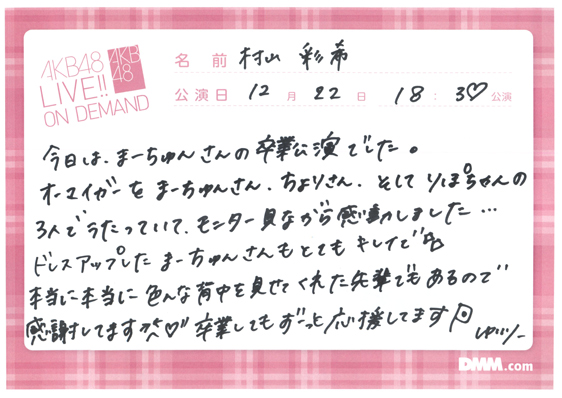 AKB48
LIVE!!
ON DEMAND
AKB
48
名前 村山 彩希
公演日 12月22日 18:30公演
今日は、まーちゅんさんの卒業公演でした。
オーマイガーをまーちゅんさん、ちよりさん、そしてりぽぽちゃんの
3人でうたっていて、モニター見ながら感動しました…
ドレスアップしたまーちゅんさんもとてもキレイで
本当に本当に色んな背中を見せてくれた先輩でもあるので
感謝してますが♡卒業してもずーっと応援してます
ゆいりー
DMM.com